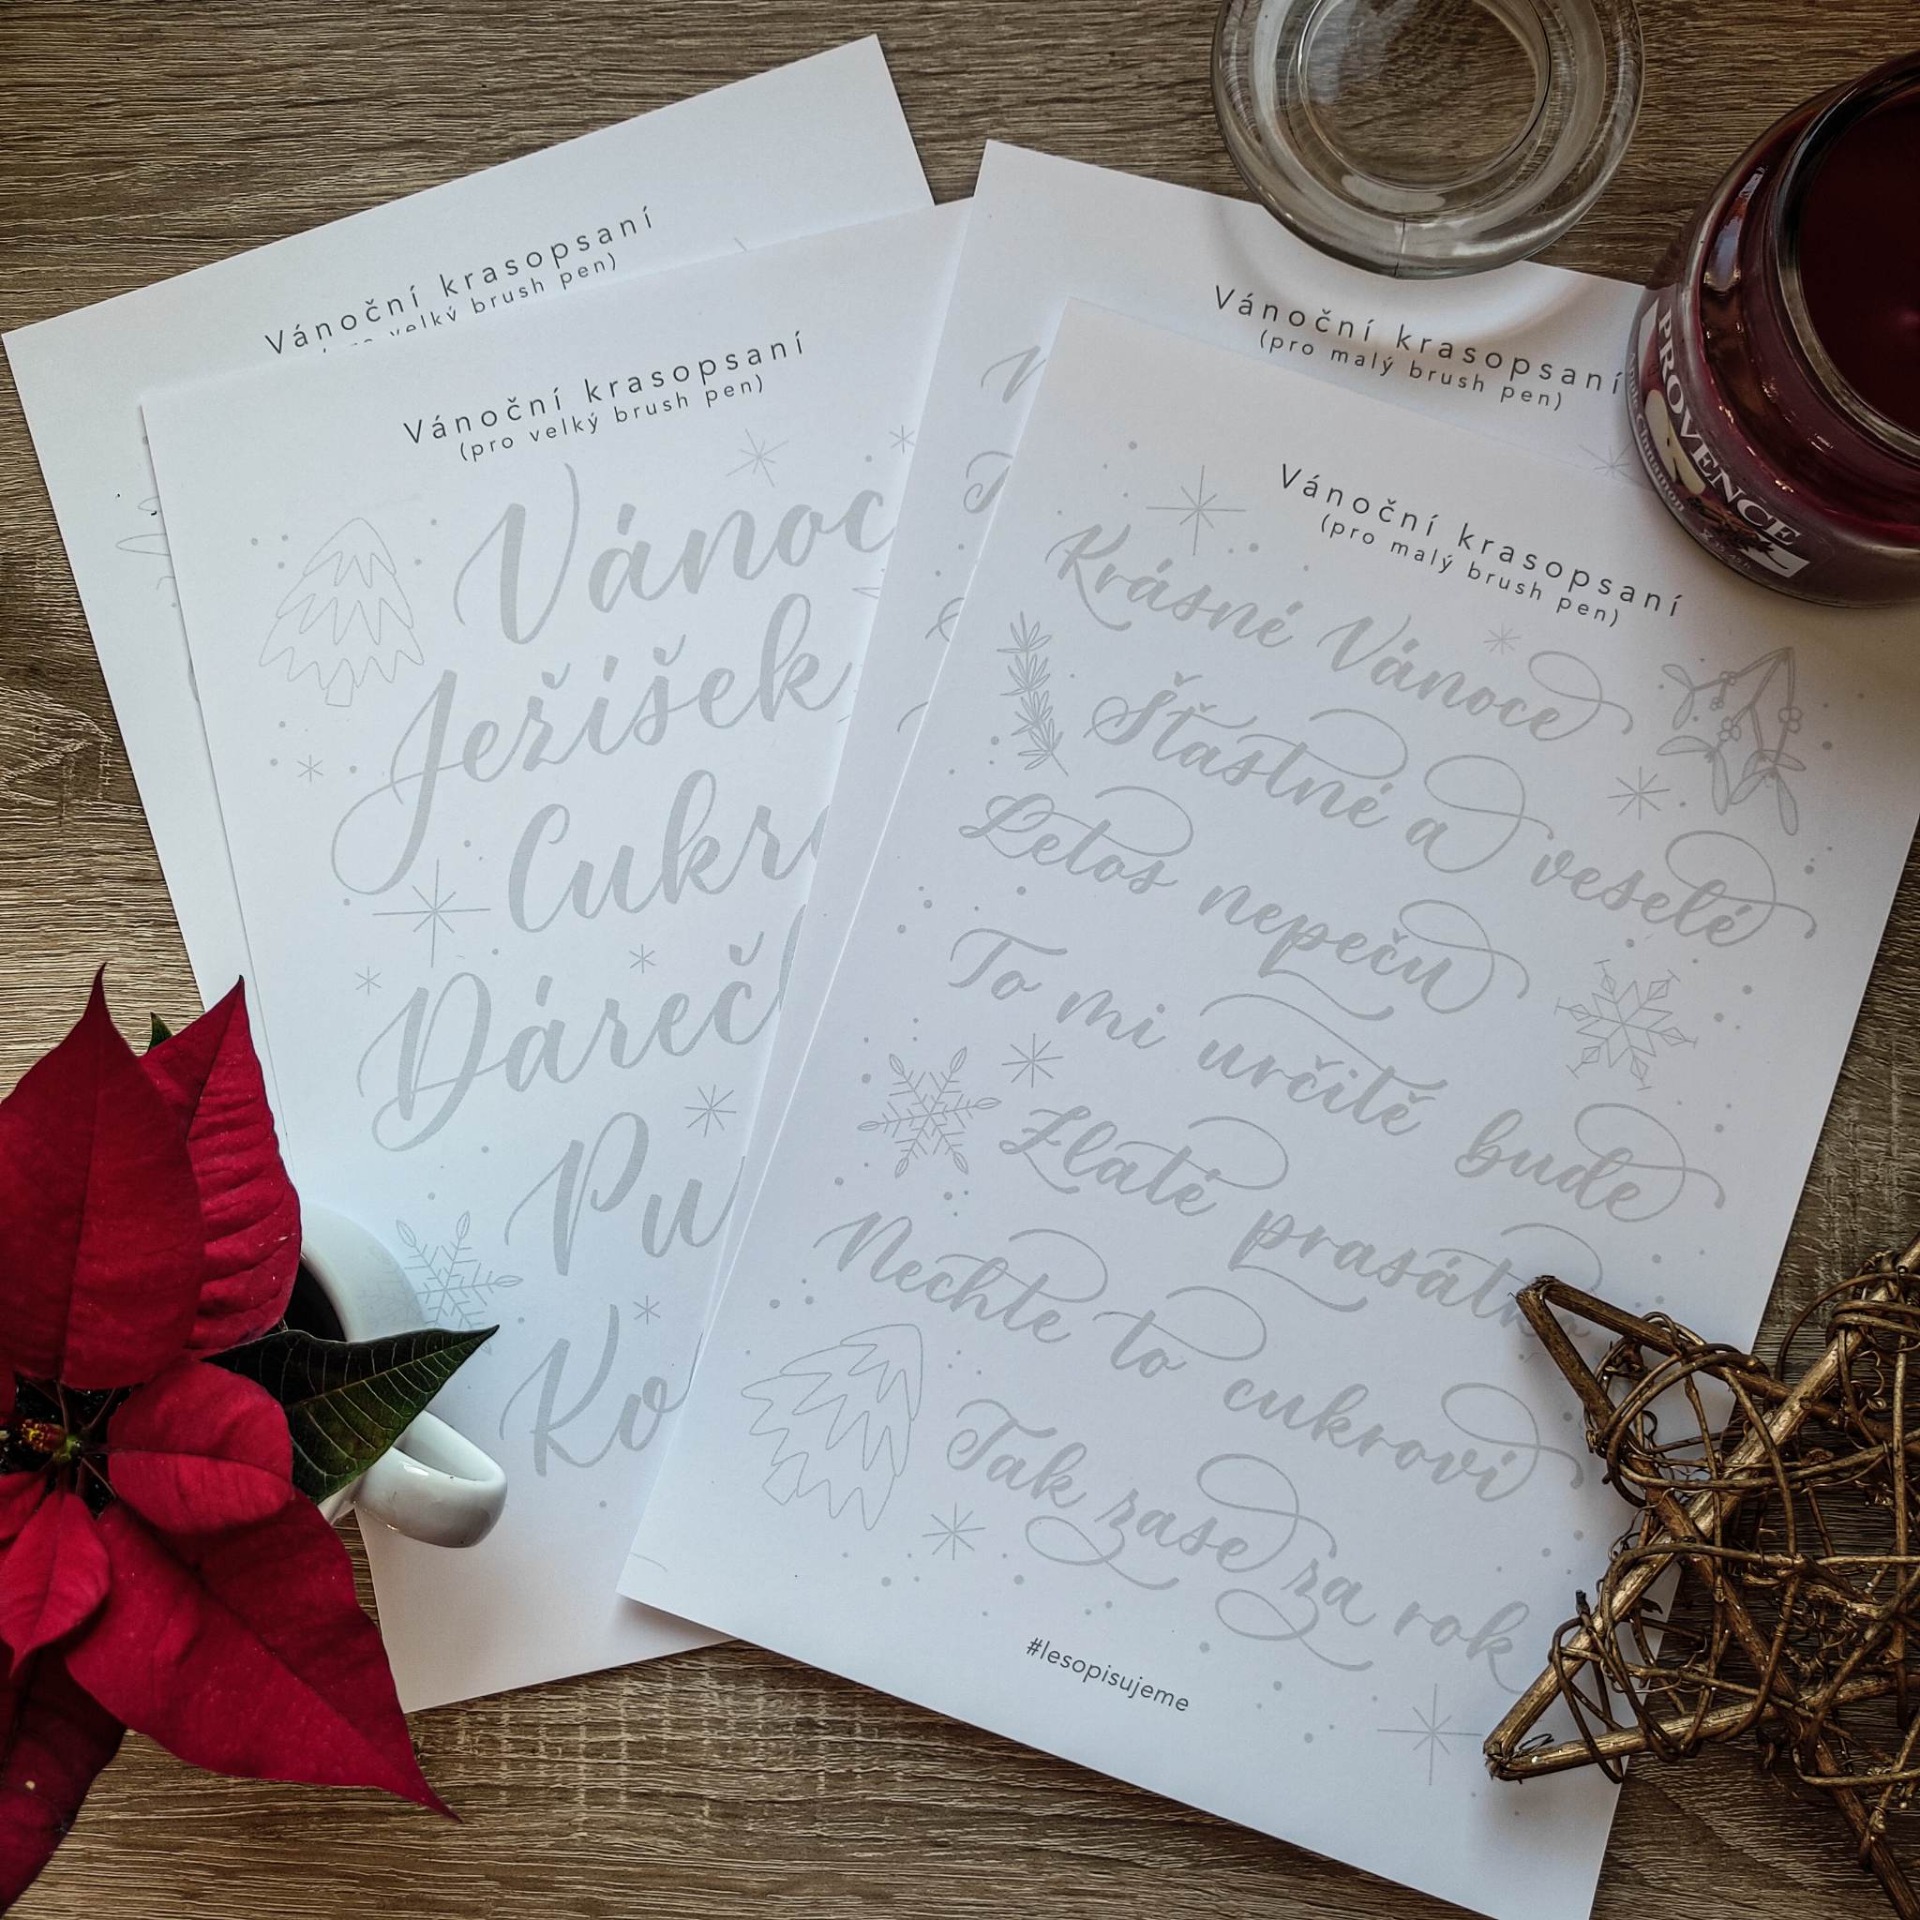 Vánoční krasopsaní
velký brush pen)
Vánoční krasopsaní
(pro velký brush pen)
Vánoc
Ježíšek
Cukr
Dáreč
Pu
Ko
Vánoční krasopsaní
(pro malý brush pen)
Vánoční krasopsaní
(pro malý brush pen)
Krásné Vánoce
Šťastné a veselé
Letos nepeču
To mi určitě bude
Zlaté prasátko
Nechte to cukroví
Tak zase za rok
#lesopisujeme
PROVENCE
Apple Cinnamon